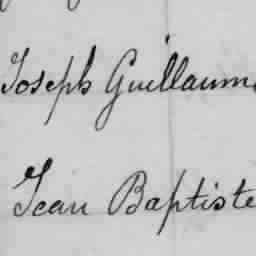 Joseph Guillaum
Jean Baptiste